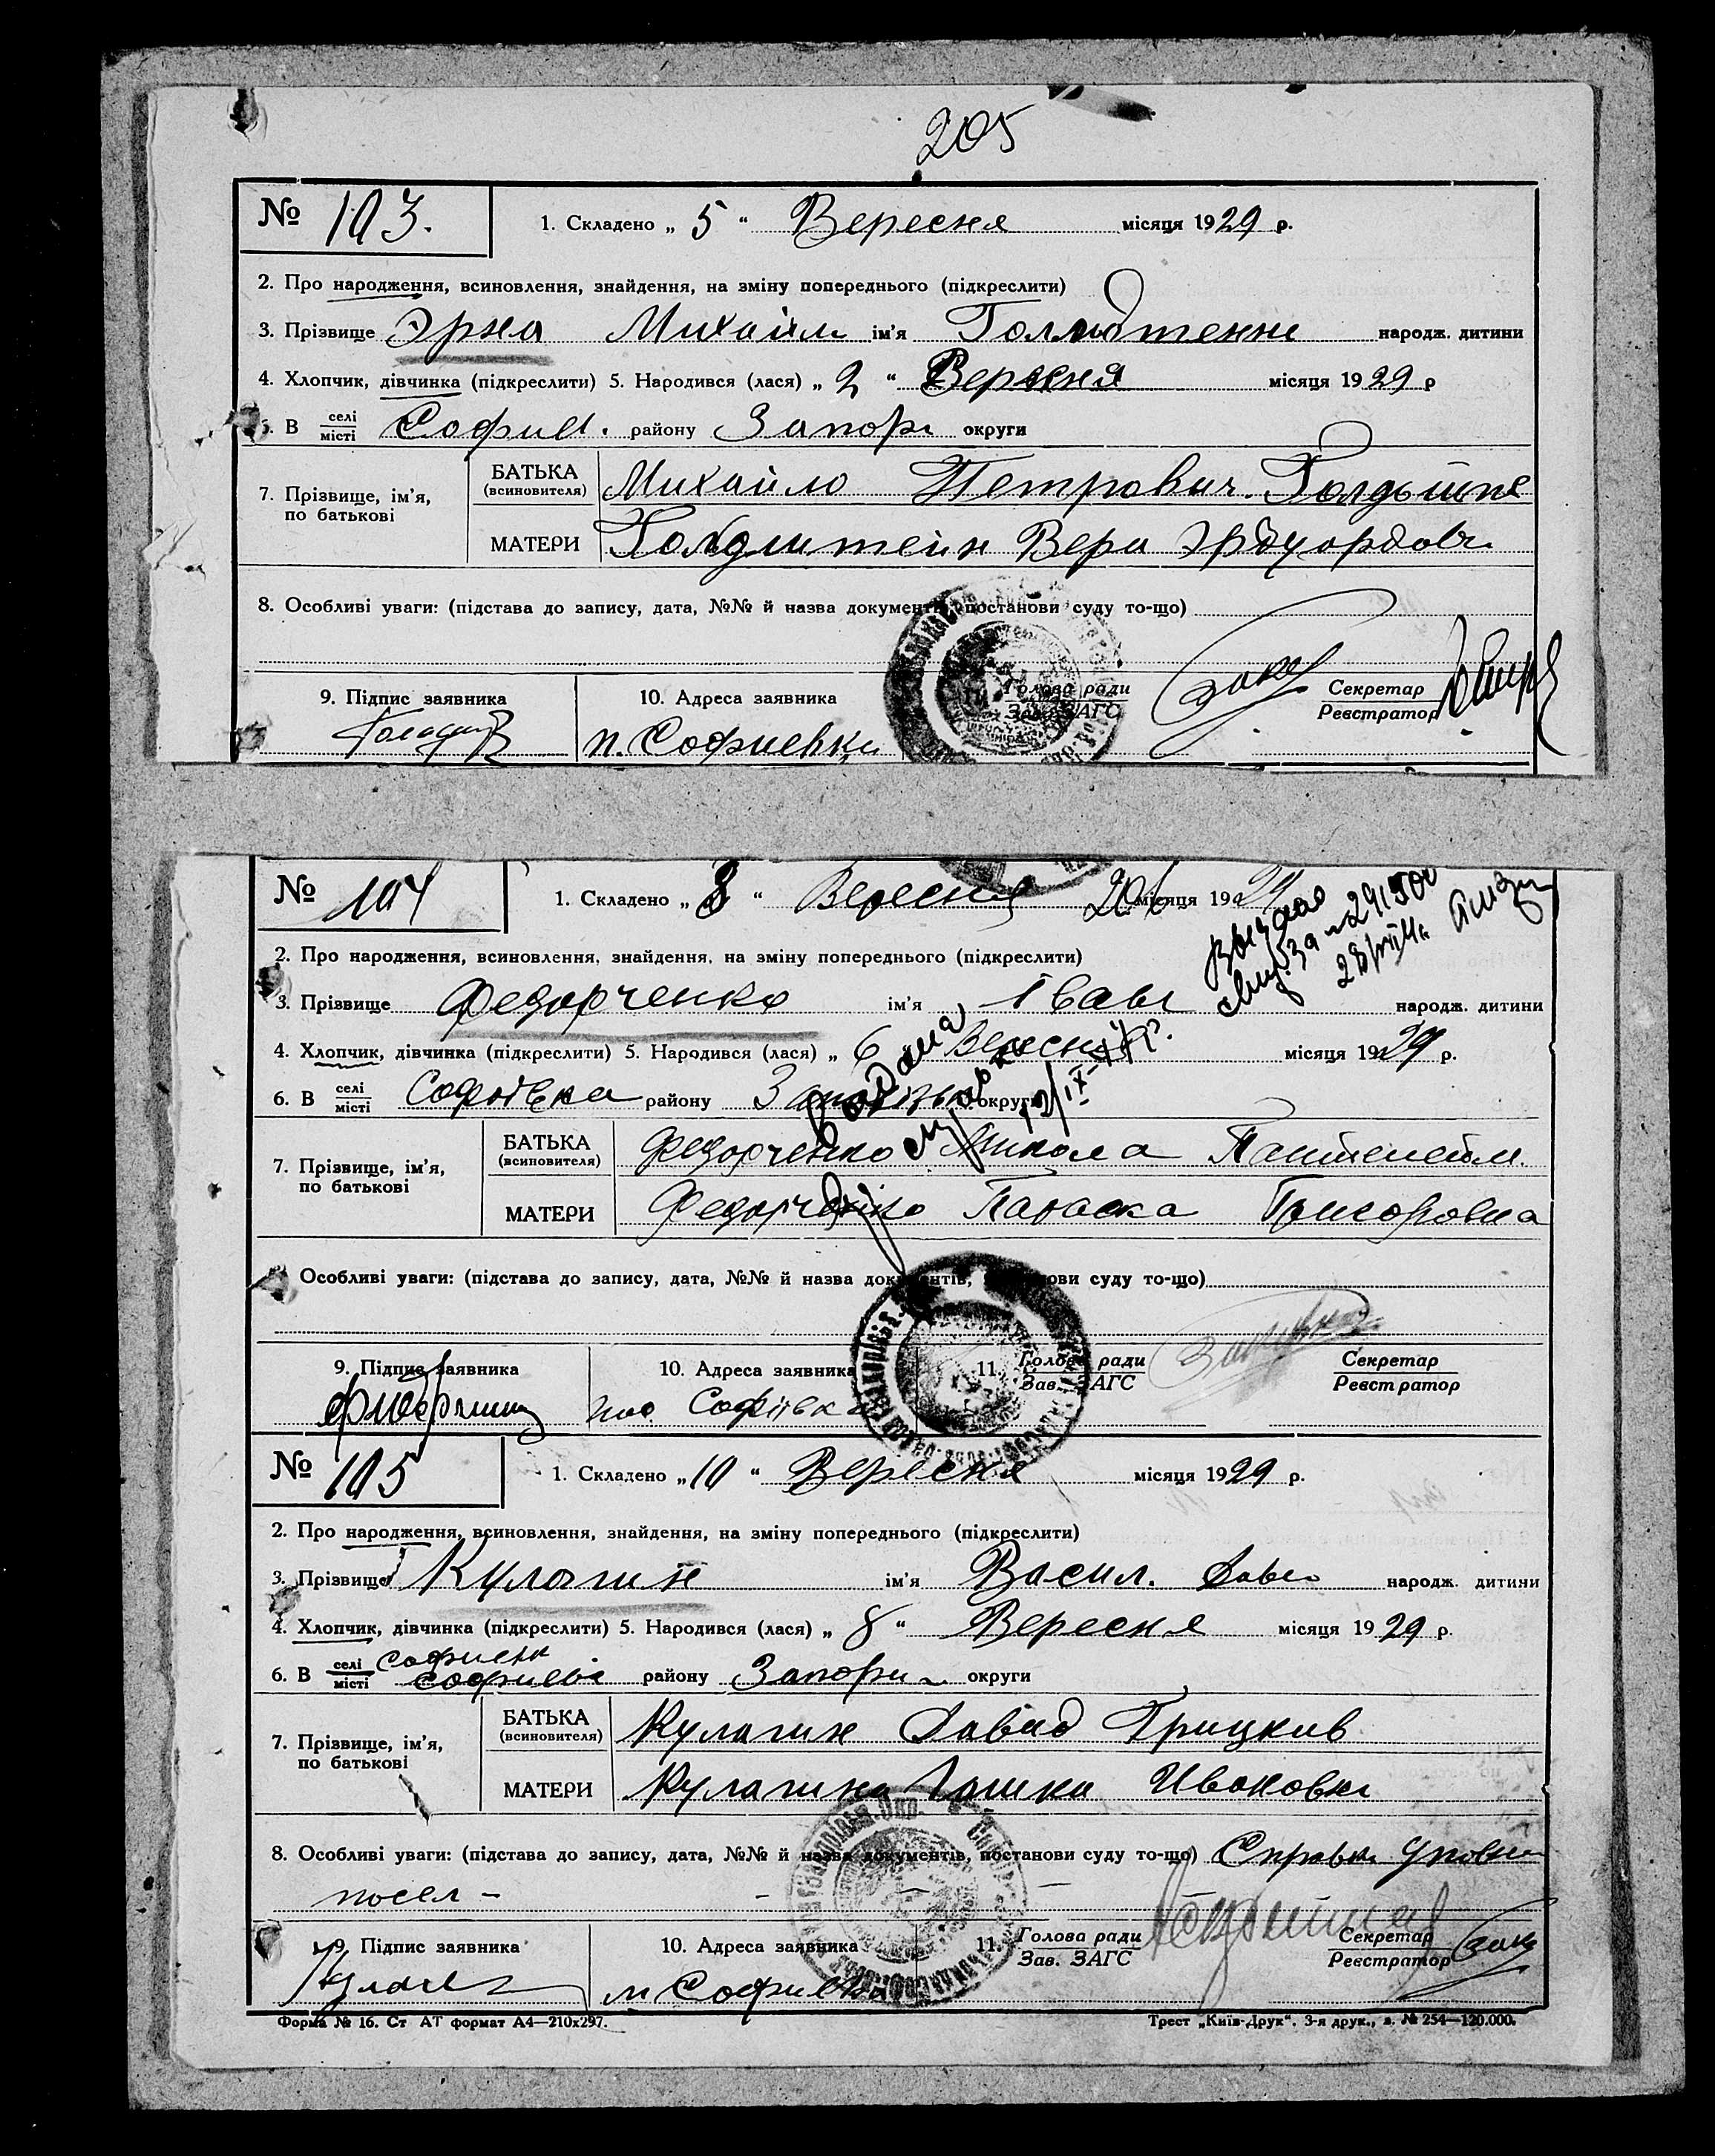 205
№ 103. 1. Складено „ 5 “ Вересня місяця 1929 р.
2. Про народження, всиновлення, знайдення, на зміну попереднього (підкреслити)
3. Прізвище Эрна Михайл ім’я народж. дитини
4. Хлопчик, дівчинка (підкреслити) 5. Народився (лася) „ 2 “ Вересня місяця 1929 р
6. В селі місті Софии. району Запор округи
7. Прізвище, ім’я, по батькові
БАТЬКА (всиновителя) Михайло Петрович.
МАТЕРИ Вера
8. Особливі уваги: (підстава до запису, дата, №№ й назва документів, постанови суду то-що)
9. Підпис заявника 10. Адреса заявника Голова ради Зав. ЗАГС Секретар Реєстратор
п. Софиевка
№ 104 1. Складено „ 8 “ Вересня місяця 1929
2. Про народження, всиновлення, знайдення, на зміну попереднього (підкреслити)
3. Прізвище Федорченко ім’я Іван народж. дитини
4. Хлопчик, дівчинка (підкреслити) 5. Народився (лася) „ 6 Вересня місяця 1929 р.
6. В селі місті Софіївка району округи
7. Прізвище, ім’я, по батькові
БАТЬКА (всиновителя) Федорченко Микола
МАТЕРИ Федорченко Параска Григоровна
Особливі уваги: (підстава до запису, дата, №№ й назва документів, постанови суду то-що)
9. Підпис заявника 10. Адреса заявника 11. Голова ради Зав. ЗАГС Секретар Реєстратор
Софіївка
№ 105 1. Складено „ 10 “ Вересня місяця 1929 р.
2. Про народження, всиновлення, знайдення, на зміну попереднього (підкреслити)
3. Прізвище Кулагин ім’я Васил. народж. дитини
4. Хлопчик, дівчинка (підкреслити) 5. Народився (лася) „ 8 “ Вересня місяця 1929 р.
6. В селі місті району Запори округи
7. Прізвище, ім’я, по батькові
БАТЬКА (всиновителя) Кулагин Давид Грицков
МАТЕРИ Кулагина Ивановка
8. Особливі уваги: (підстава до запису, дата, №№ й назва документів, постанови суду то-що) Справка
посел –
9. Підпис заявника 10. Адреса заявника 11. Голова ради Зав. ЗАГС Секретар Реєстратор
Форма № 16. Ст АТ формат А4—210х297. Трест „Київ-Друк“. 3-я друк., з. № 254—120.000.